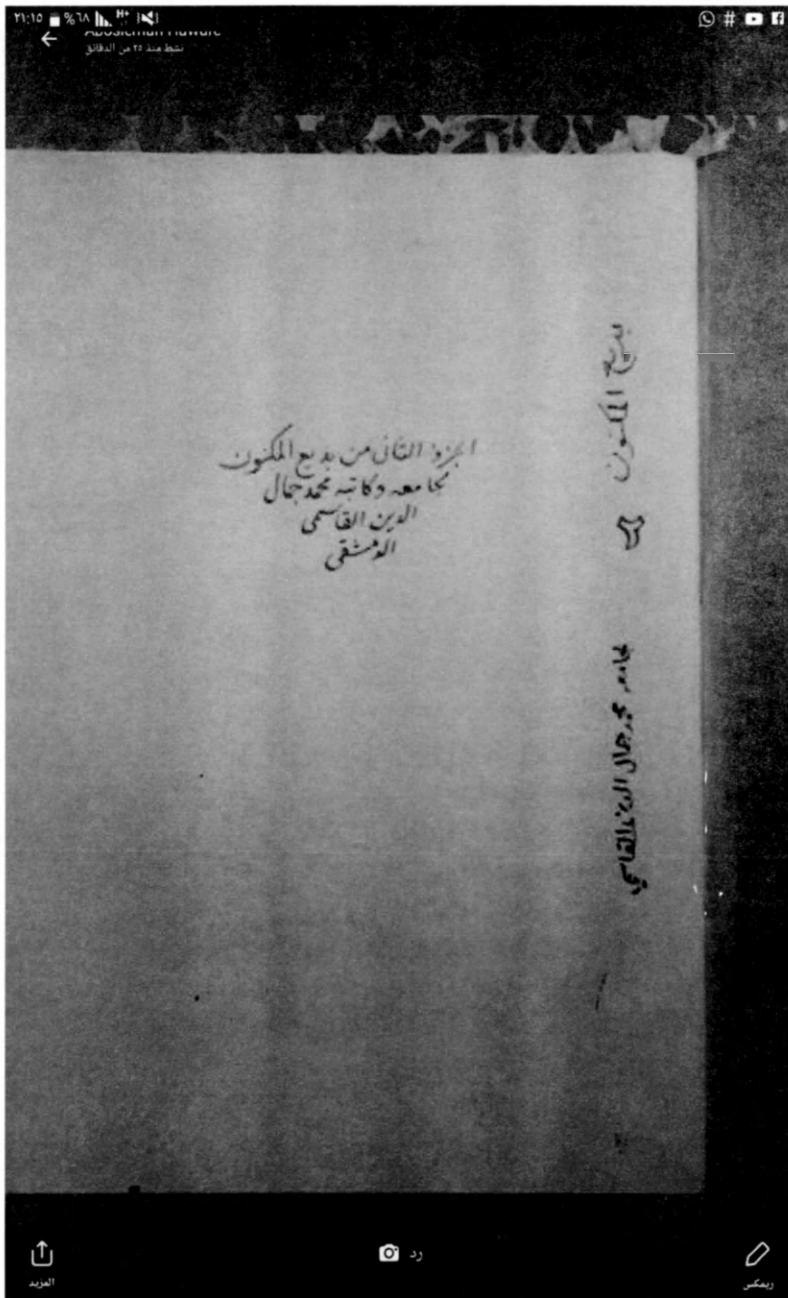 ٢١:١٥ %٦٨ H+
نشط منذ ٢٥ من الدقائق
الجزء الثاني من بديع المكنون
لجامعه وكاتبه محمد جمال
الدين القاسمي
الدمشقي
بديع المكنون
٢
لجامعه محمد جمال الدين القاسمي
رد
المزيد
ريمكس